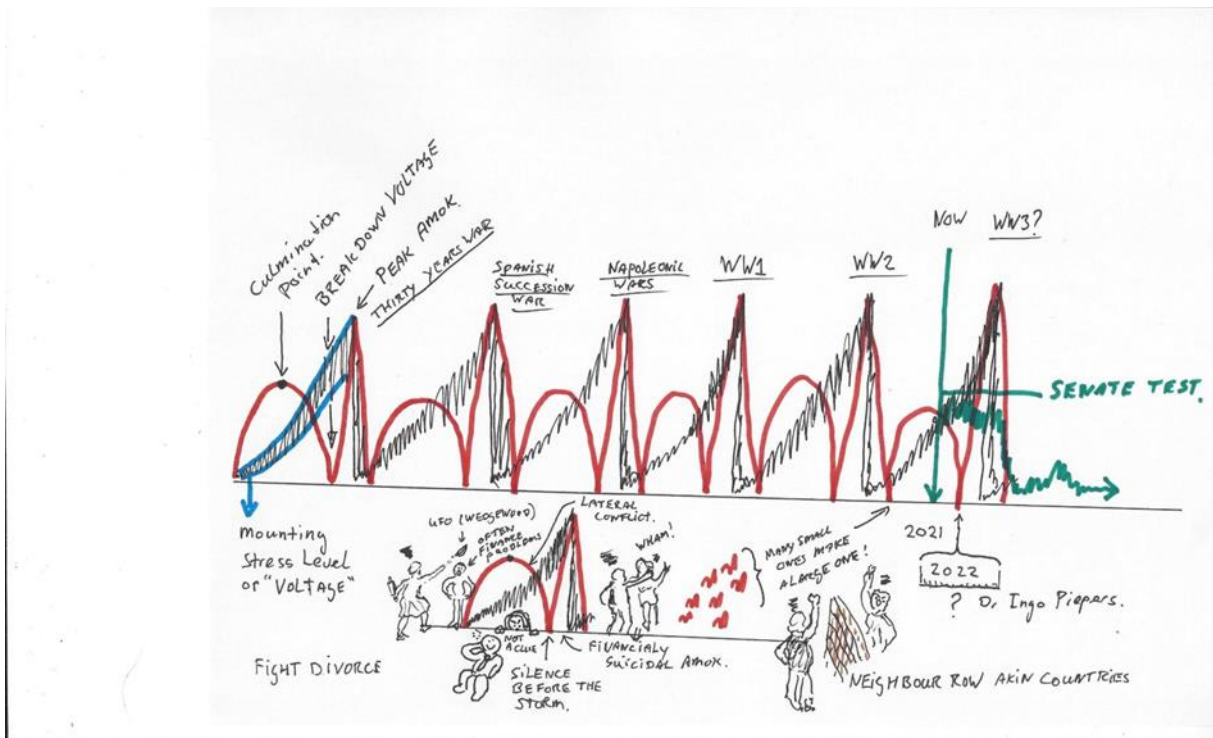 Culmination
Point.
BREAK DOWN VOLTAGE
PEAK AMOK.
THIRTY YEARS WAR
SPANISH
SUCCESSION
WAR
NAPOLEONIC
WARS
WW1
WW2
NOW
WW3?
SENATE TEST.
mounting
Stress Level
or "VOLTAGE"
UFO (WEDGEWOOD)
OFTEN
FINANCE
PROBLEMS
LATERAL
CONFLICT.
WHAM!
MANY SMALL
ONES MAKE
A LARGE ONE!
2021
2022
? Dr Ingo Piepers.
NOT
A CLUE
FIGHT DIVORCE
SILENCE
BEFORE THE
STORM.
FINANCIALY
SUICIDAL AMOK.
NEIGHBOUR ROW AKIN COUNTRIES